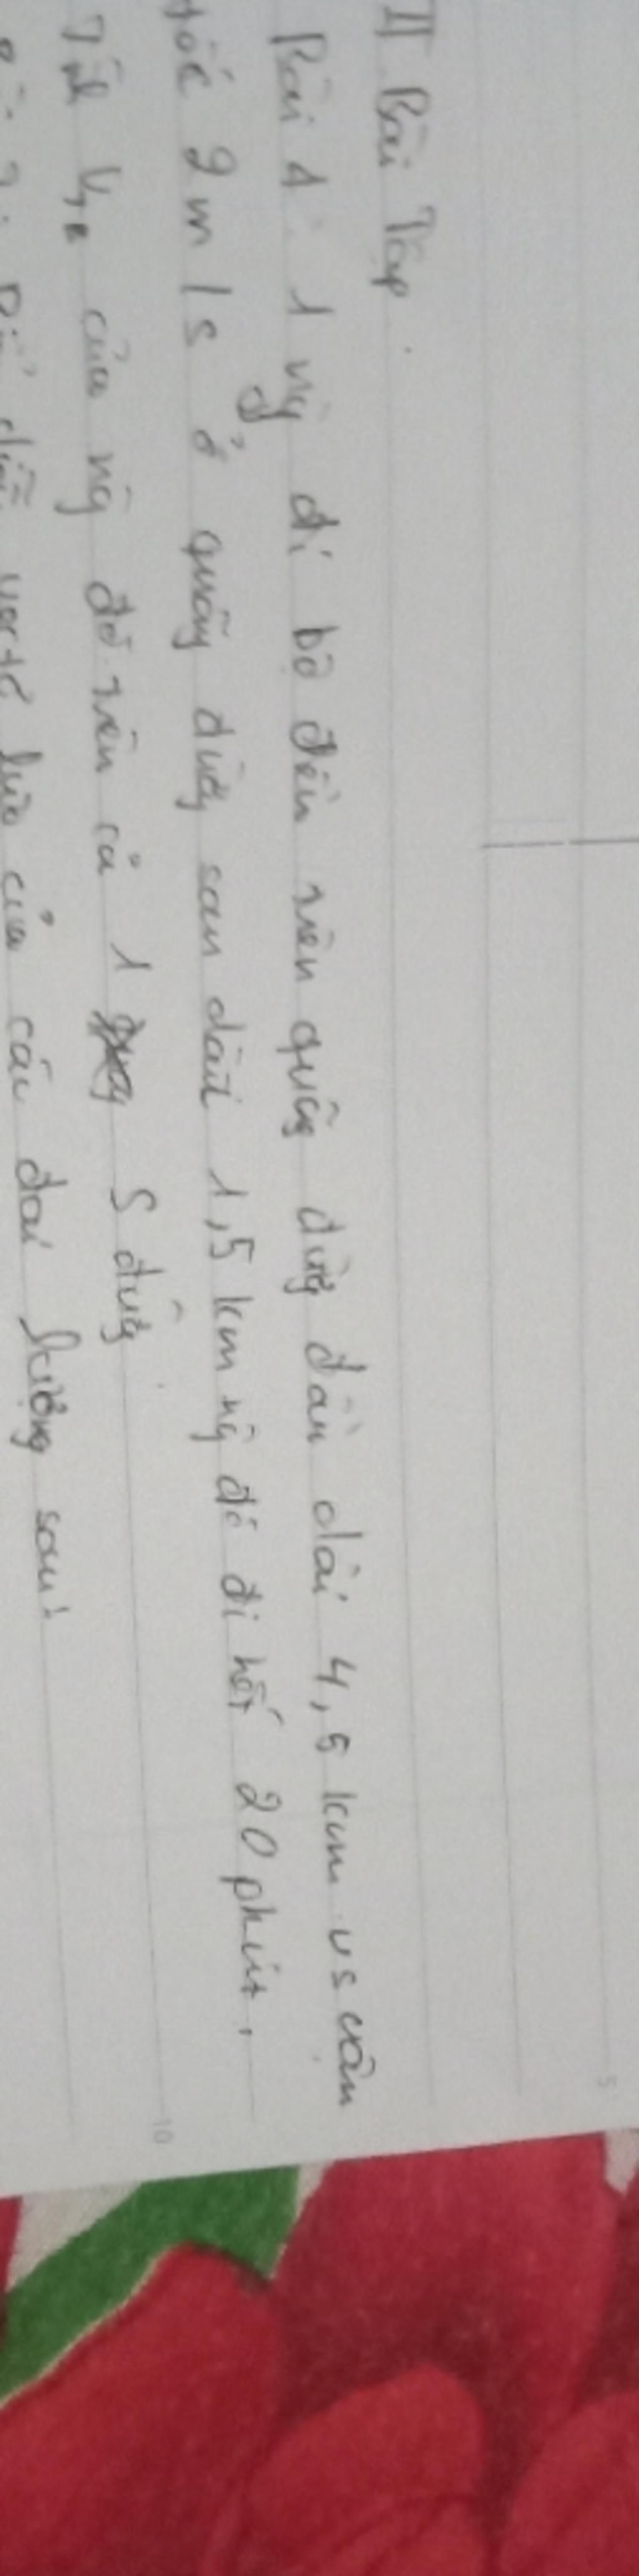 II Bài Tập.
Bài 1: 1 ng đi bộ đều trên quãng đườg đầu dài 4,5 km vs vận
tốc 2 m/s ở quãng đườg sau dài 1,5 km ng đó đi hết 20 phút.
Tính Vtb của ng đó trên cả 1 S đườg.
lực của các đại lượng sau:
5
10